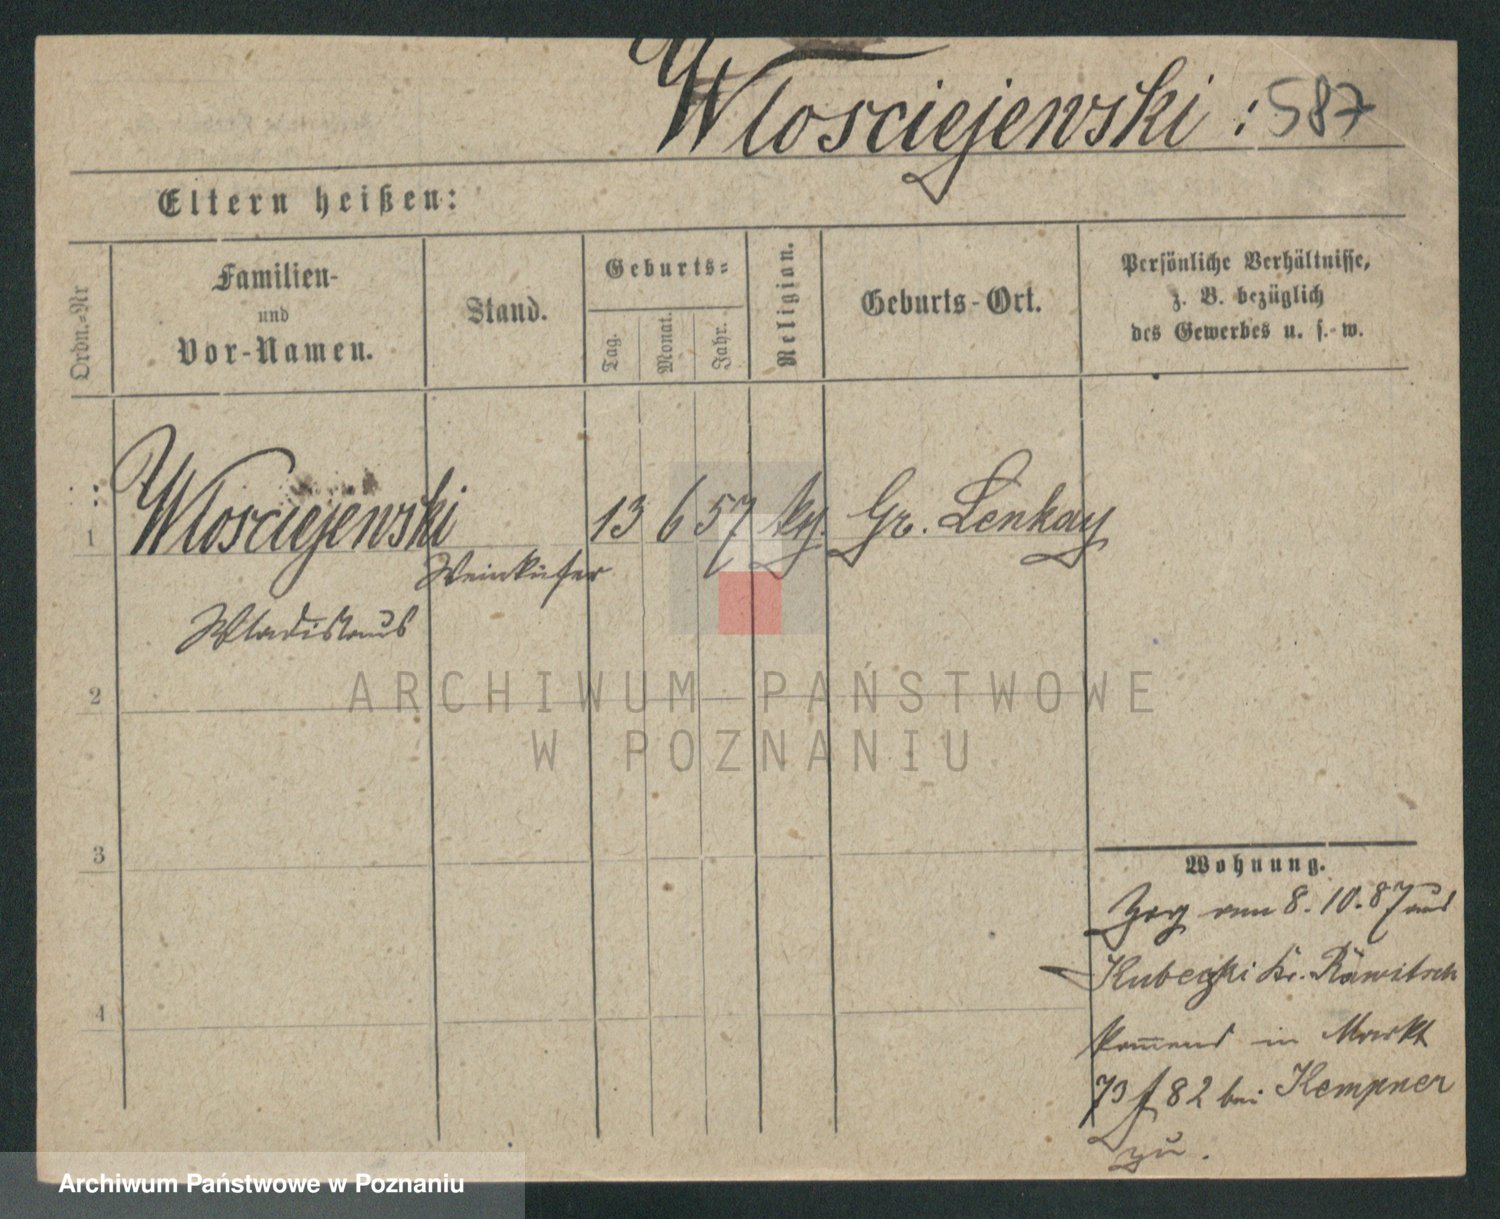 Wlosciejewski : 587
Eltern heißen:
Ordn.-Nr
Familien-
und
Vor-Namen.
Stand.
Geburts-
Tag.
Monat.
Jahr.
Religion.
Geburts-Ort.
Persönliche Verhältnisse,
z. B. bezüglich
des Gewerbes u. s.-w.
1 Wlosciejewski 13 6 57 kg. Gr. Lenkay
Weinküfer
Wladislaus
2
3
4
Wohnung.
Zog am 8.10.87 aus
Kubeczki Kr. Rawitsch
kommend in Markt
73 f 82 bei Kempner
zu.
ARCHIWUM PAŃSTWOWE
W POZNANIU
Archiwum Państwowe w Poznaniu